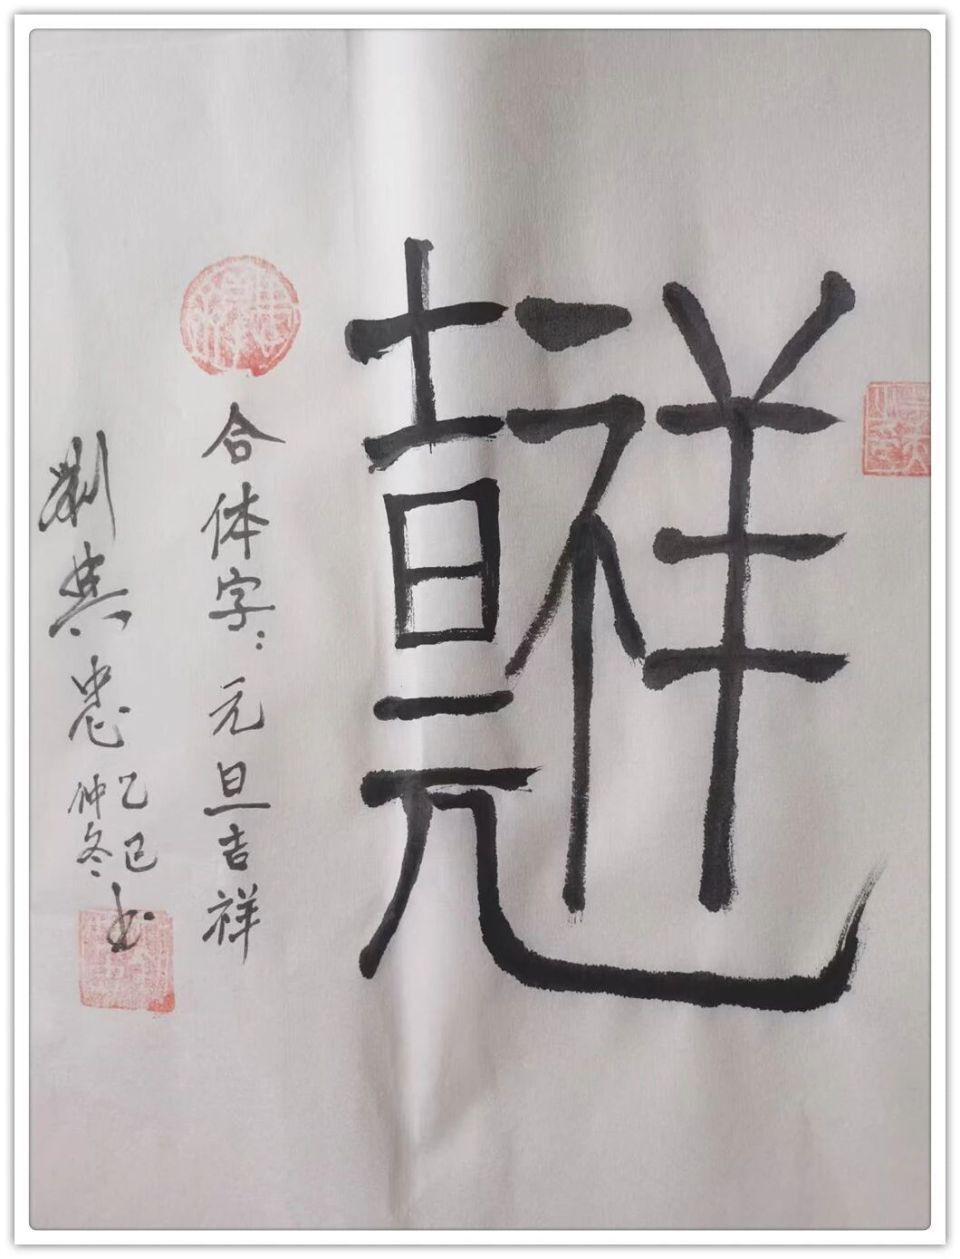 合体字：元旦吉祥
刘典忠
乙巳
仲冬
书